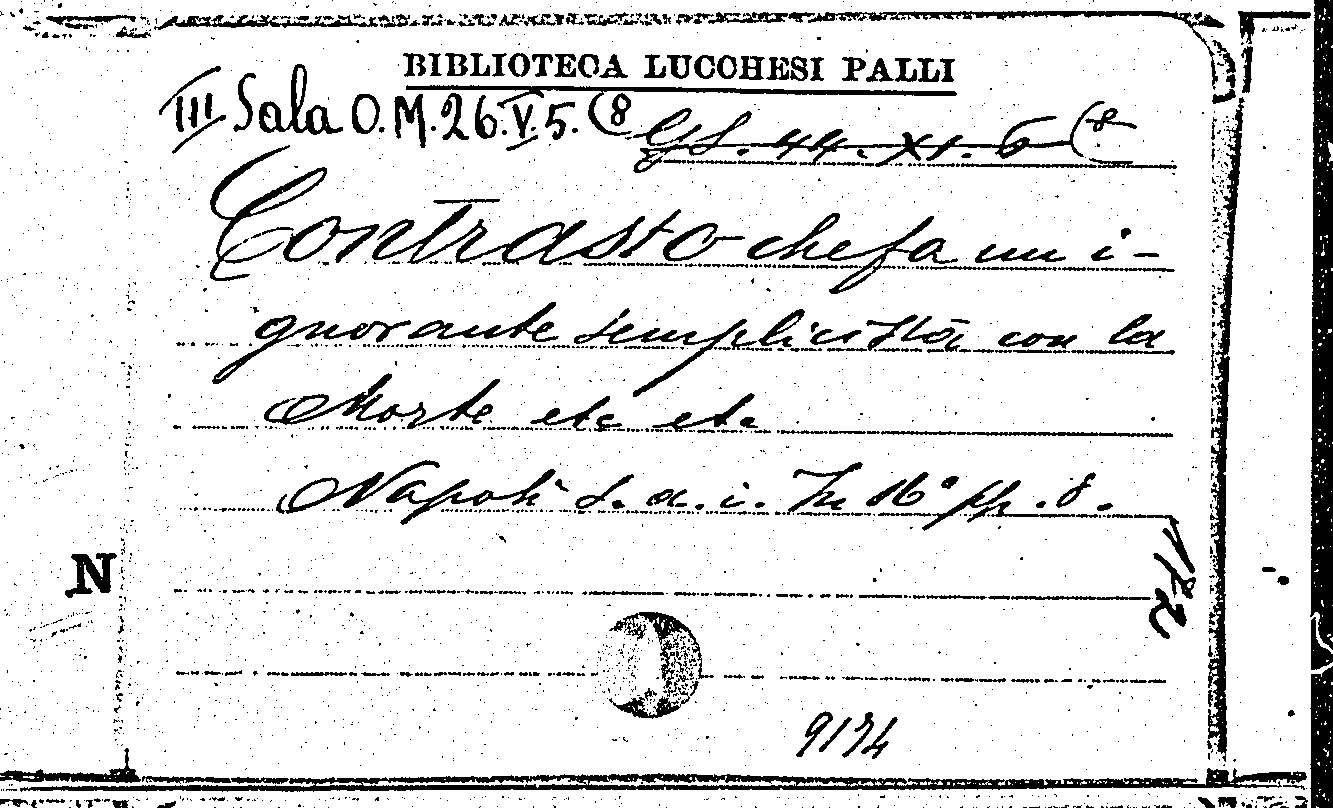 BIBLIOTECA LUCCHESI PALLI
III Sala O.M.26.V.5.(8 GS. 44. XI. 6 (8
Contrasto che fa un i-
gnorante semplicista con la
Morte etc etc
Napoli s. a. i. In 16° pp. 8.
N
9194